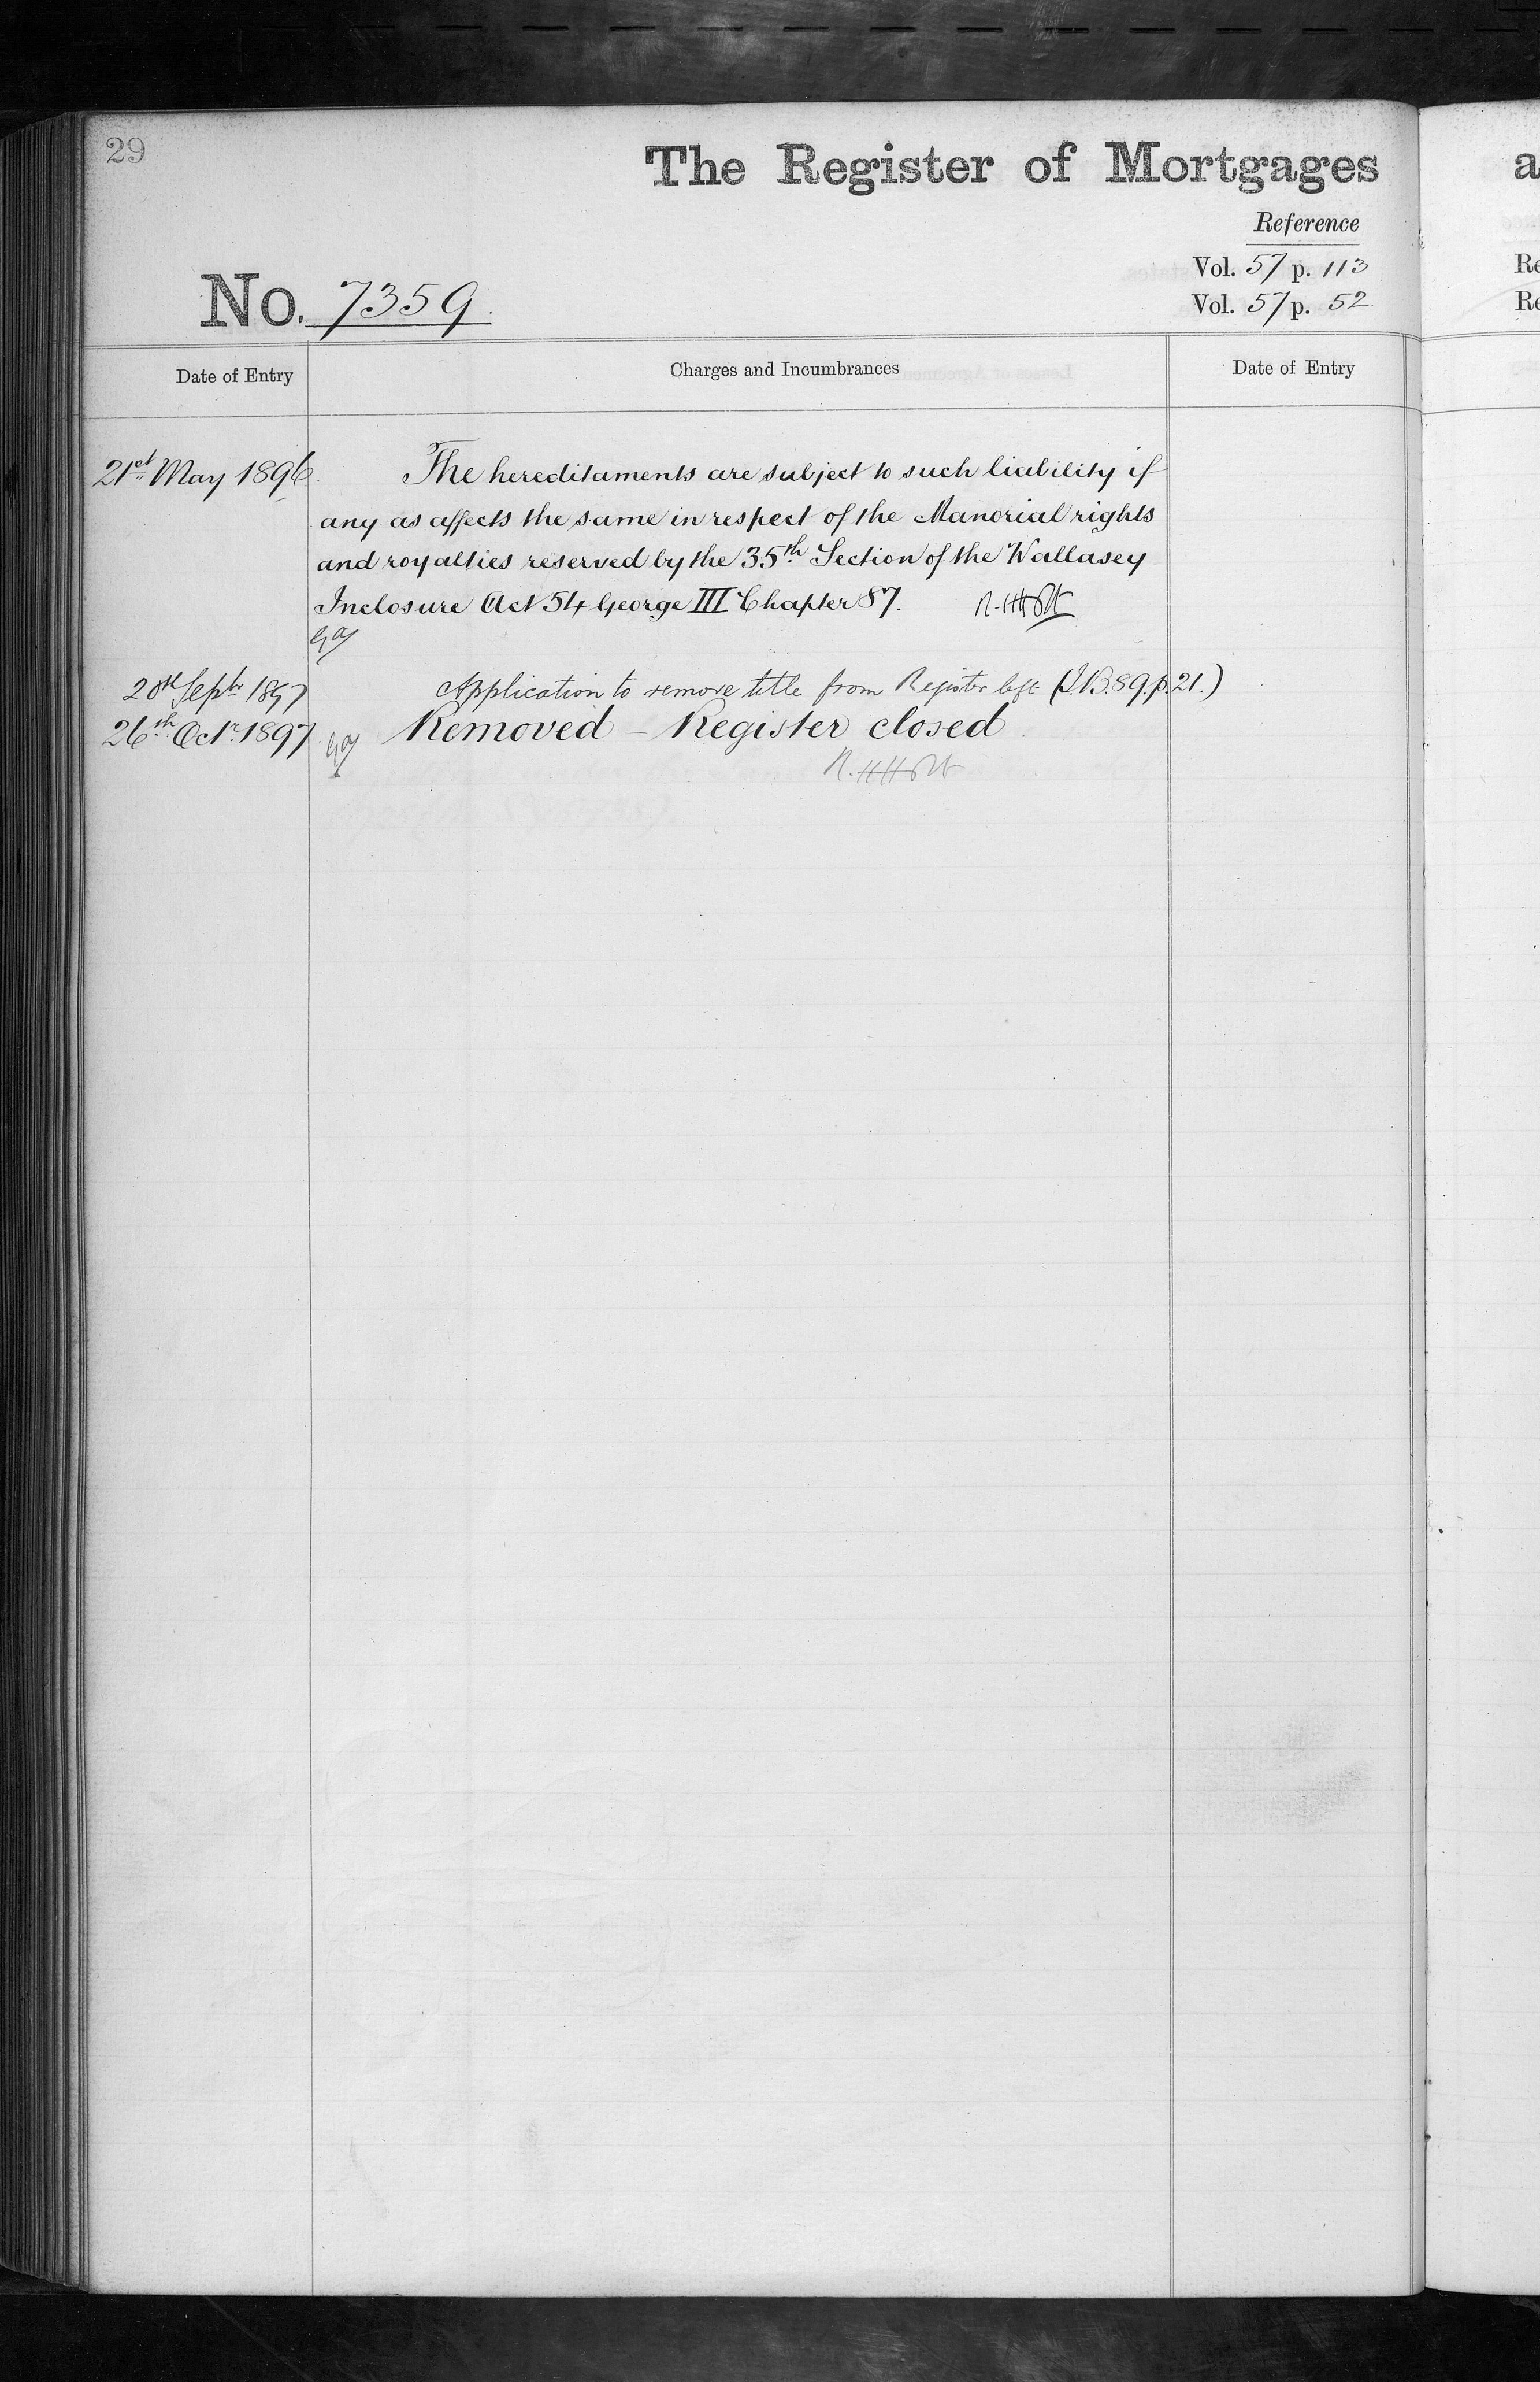 29
The Register of Mortgages
Reference
Vol. 57 p. 113
No. 7359.
Vol. 57 p. 52
Date of Entry
Charges and Incumbrances
Date of Entry
21st May 1896
The hereditaments are subject to such liability if
any as affects the same in respect of the Manorial rights
and royalties reserved by the 35th Section of the Wallasey
Inclosure Act 54 George III Chapter 87.
20th Septr 1897
Application to remove title from Register left (I.B.89.p.21.)
26th Octr. 1897
Removed - Register closed